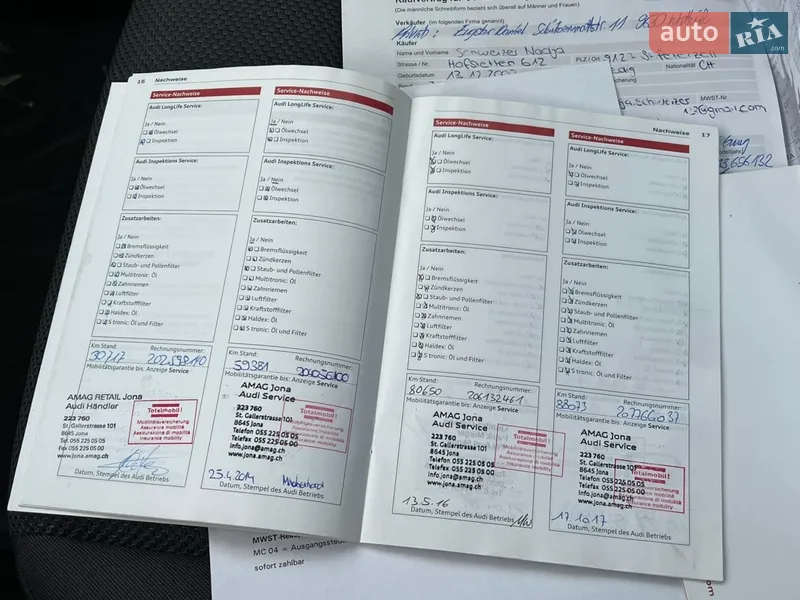 auto RIA .com
(Die männliche Schreibform bezieht sich überall auf Männer und Frauen)
Verkäufer (im folgenden Firma genannt)
Käufer
Name und Vorname Schweizer Nadja
Strasse / Nr. Hofstetten 612 PLZ / Ort 9127
Geburtsdatum Nationalität CH
MWST-Nr.
@gmail.com
16 Nachweise
Service-Nachweise
Audi LongLife Service:
Ja / Nein
Ölwechsel
Inspektion
Audi Inspektions Service:
Ja / Nein
Ölwechsel
Inspektion
Zusatzarbeiten:
Ja / Nein
Bremsflüssigkeit
Zündkerzen
Staub- und Pollenfilter
Multitronic: Öl
Zahnriemen
Luftfilter
Kraftstofffilter
Haldex: Öl
S tronic: Öl und Filter
Km Stand: Rechnungsnummer:
30717
Mobilitätsgarantie bis: Anzeige Service
AMAG RETAIL Jona
Audi Händler
223 760
St. Gallerstrasse 101
8645 Jona
Tel. 055 225 05 05
Fax 055 225 05 00
www.jona.amag.ch
Totalmobil!
Mobilitätsversicherung
Assurance mobilité
Assicurazione mobilità
Insurance mobility
Datum, Stempel des Audi Betriebs
Service-Nachweise
Audi LongLife Service:
Ja / Nein
Ölwechsel
Inspektion
Audi Inspektions Service:
Ja / Nein
Ölwechsel
Inspektion
Zusatzarbeiten:
Ja / Nein
Bremsflüssigkeit
Zündkerzen
Staub- und Pollenfilter
Multitronic: Öl
Zahnriemen
Luftfilter
Kraftstofffilter
Haldex: Öl
S tronic: Öl und Filter
Km Stand: Rechnungsnummer:
59381 204056100
Mobilitätsgarantie bis: Anzeige Service
AMAG Jona
Audi Service
223 760
St. Gallerstrasse 101
8645 Jona
Telefon 055 225 05 05
Telefax 055 225 05 00
info.jona@amag.ch
www.jona.amag.ch
Totalmobil!
25.4.2014
Datum, Stempel des Audi Betriebs
Nachweise 17
Service-Nachweise
Audi LongLife Service:
Ja / Nein
Ölwechsel
Inspektion
Audi Inspektions Service:
Ja / Nein
Ölwechsel
Inspektion
Zusatzarbeiten:
Ja / Nein
Bremsflüssigkeit
Zündkerzen
Staub- und Pollenfilter
Multitronic: Öl
Zahnriemen
Luftfilter
Kraftstofffilter
Haldex: Öl
S tronic: Öl und Filter
Km Stand: Rechnungsnummer:
80650 206132461
Mobilitätsgarantie bis: Anzeige Service
AMAG Jona
Audi Service
223 760
St. Gallerstrasse 101
8645 Jona
Telefon 055 225 05 05
Telefax 055 225 05 00
info.jona@amag.ch
www.jona.amag.ch
Totalmobil!
13.5.16
Datum, Stempel des Audi Betriebs
Service-Nachweise
Audi LongLife Service:
Ja / Nein
Ölwechsel
Inspektion
Audi Inspektions Service:
Ja / Nein
Ölwechsel
Inspektion
Zusatzarbeiten:
Ja / Nein
Bremsflüssigkeit
Zündkerzen
Staub- und Pollenfilter
Multitronic: Öl
Zahnriemen
Luftfilter
Kraftstofffilter
Haldex: Öl
S tronic: Öl und Filter
Km Stand: Rechnungsnummer:
88073 207766031
Mobilitätsgarantie bis: Anzeige Service
AMAG Jona
Audi Service
223 760
St. Gallerstrasse 101
8645 Jona
Telefon 055 225 05 05
Telefax 055 225 05 00
info.jona@amag.ch
www.jona.amag.ch
Totalmobil!
17.10.17
Datum, Stempel des Audi Betriebs
MC 04 = Ausgangssteuer
sofort zahlbar